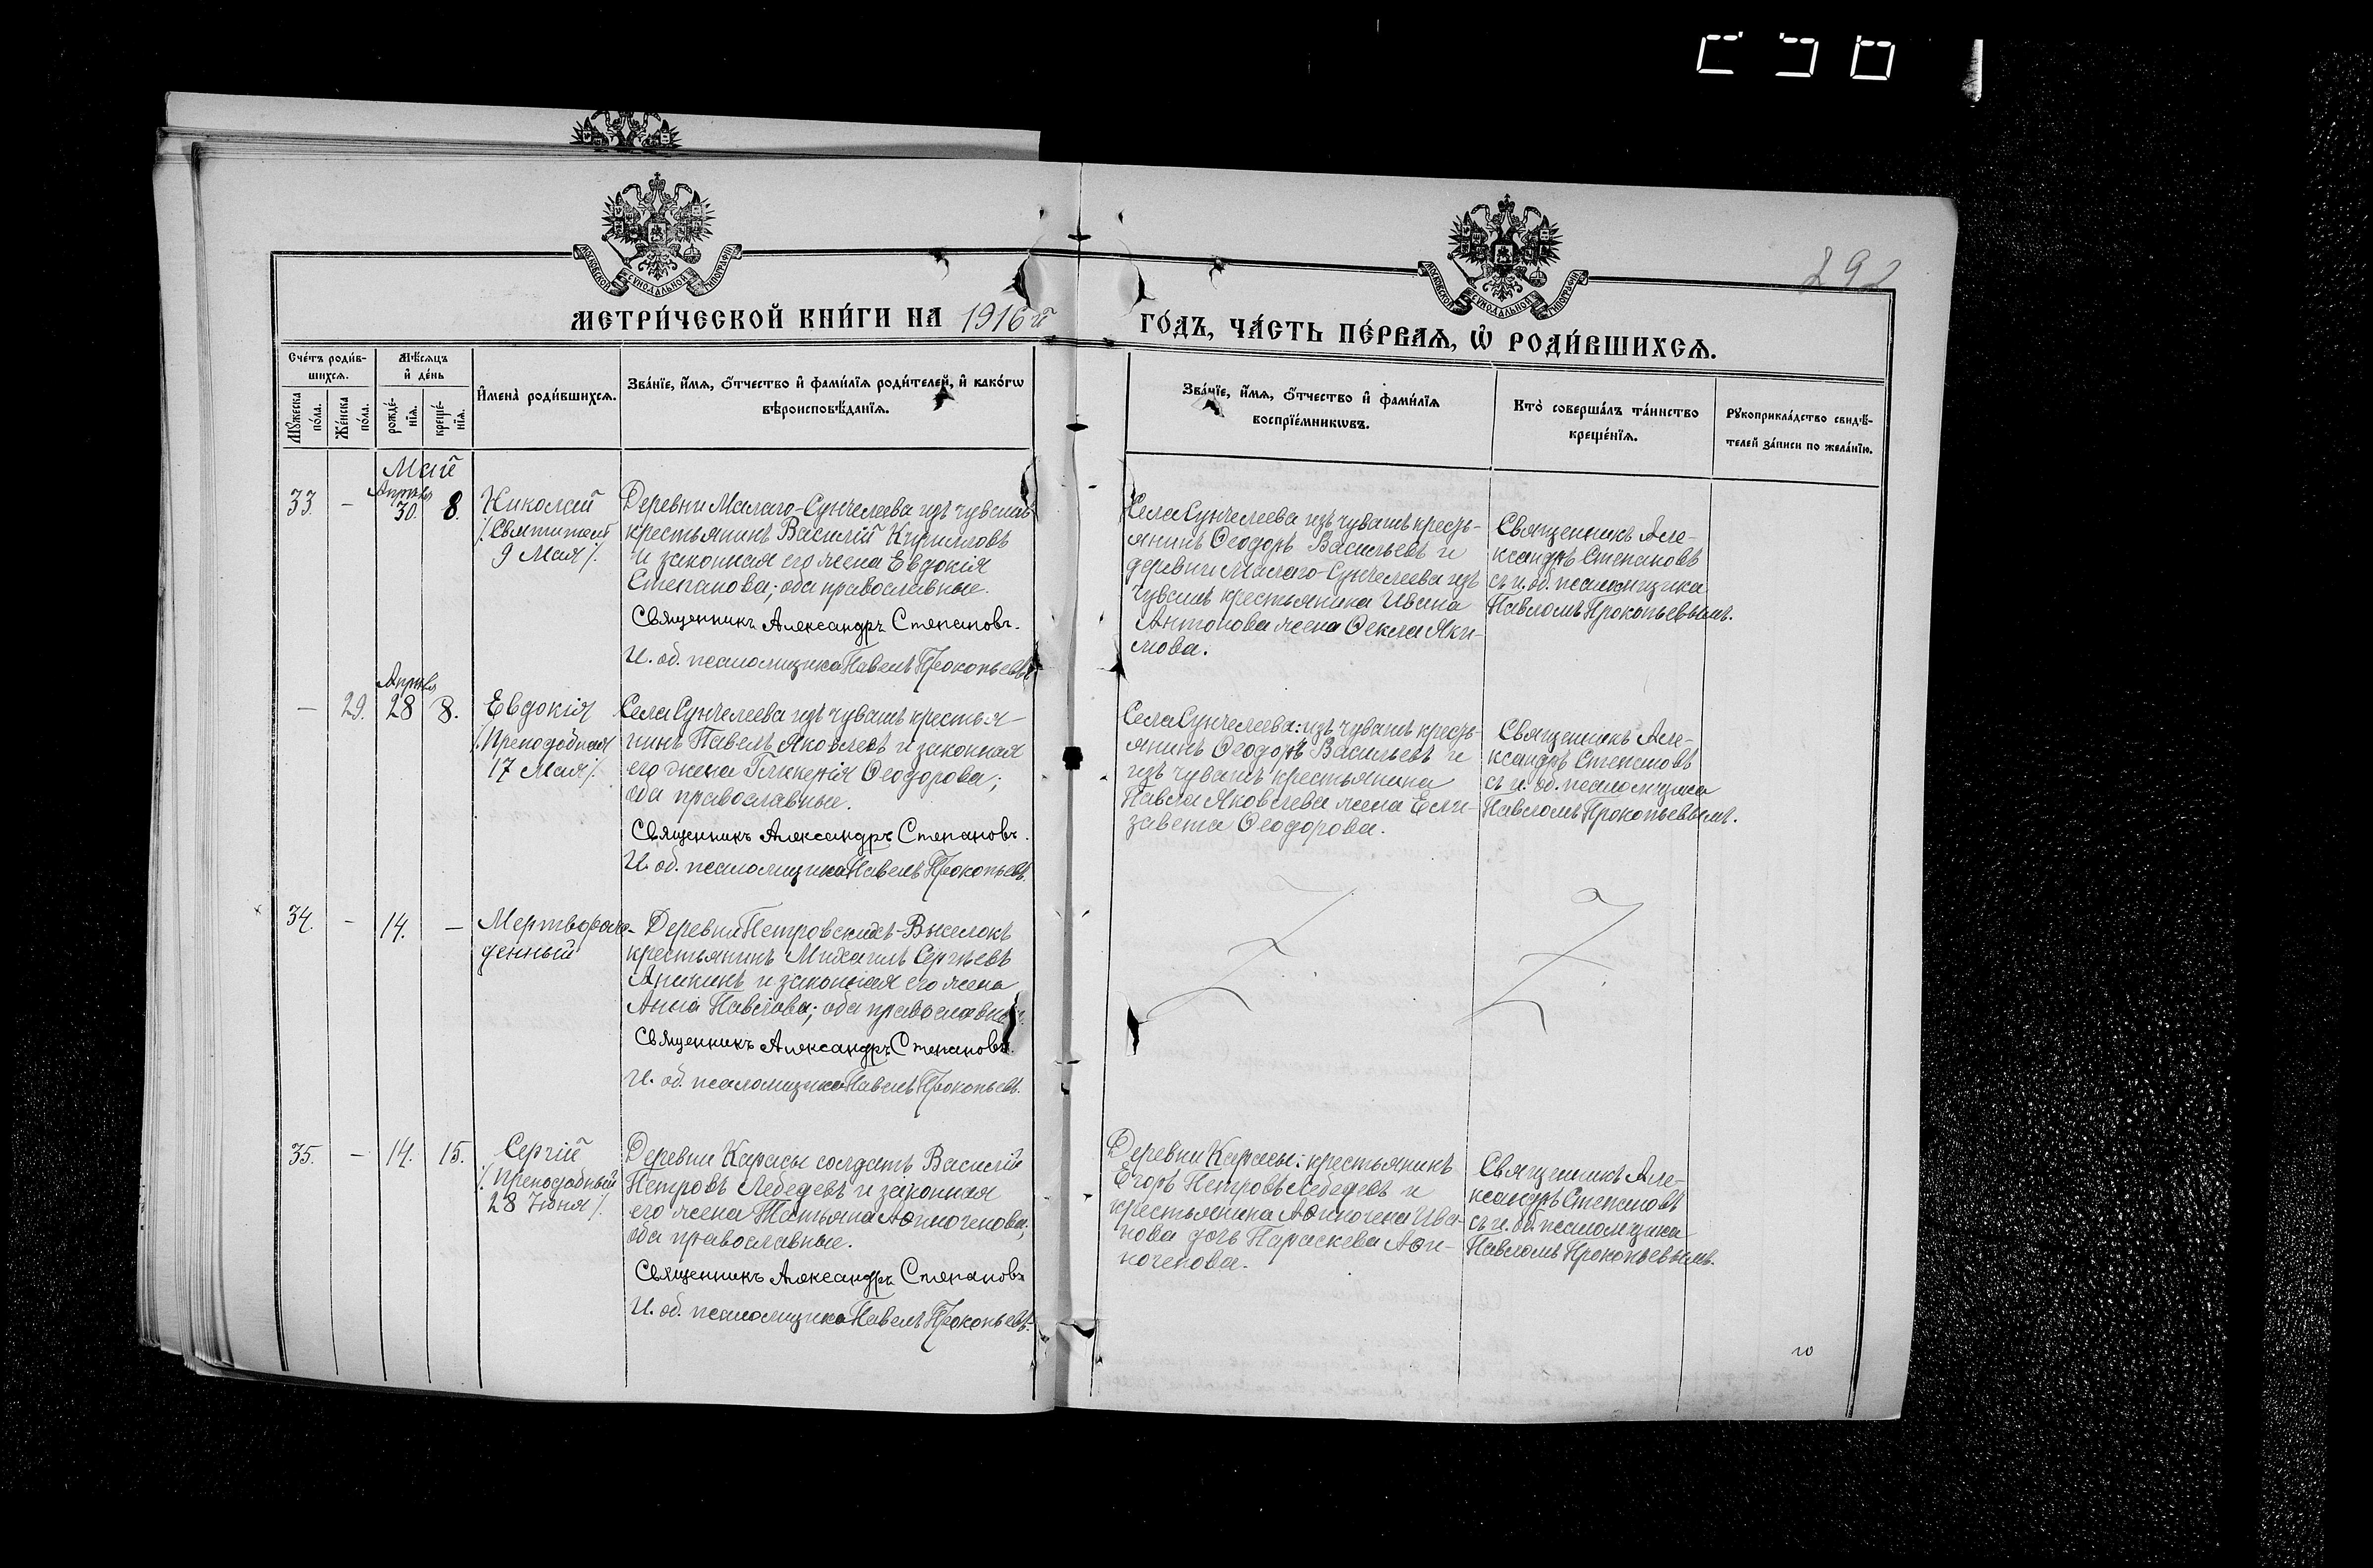 292
МОСКОВСКОЙ СѴНОДАЛЬНОЙ ТИПОГРАФІИ
МОСКОВСКОЙ СѴНОДАЛЬНОЙ ТИПОГРАФІИ
МЕТРИ́ЧЕСКОЙ КНИ́ГИ НА 1916й
ГО́ДЪ, ЧА́СТЬ ПЕ́РВАѦ, Ѡ҆ РОДИ́ВШИХСѦ.
Сче́тъ роди́в-
шихсѧ.
Мꙋ́жеска
по́ла.
Же́нска
по́ла.
Мѣ́сѧцъ
и҆ де́нь
рожде́-
нїѧ.
креще́-
нїѧ.
И҆мена̀ роди́вшихсѧ.
Зва́нїе, и҆́мѧ, о҆́тчество и҆ фами́лїѧ роди́телей, и҆ како́гѡ
вѣроисповѣ́данїѧ.
Зва́нїе, и҆́мѧ, о҆́тчество и҆ фами́лїѧ
воспрїе́мникѡвъ.
Кто̀ соверша́лъ та́инство
креще́нїѧ.
Рꙋкоприкла́дство свидѣ́-
телей за́писи по жела́нїю.
Май
33. – Апрѣля 30. 8.
Николай
/.Святитель
9 Мая/.
Деревни Малаго-Сунчелеева изъ чувашъ
крестьянинъ Василій Кирилловъ
и законная его жена Евдокія
Степанова; оба православные.
Священникъ Александръ Степановъ.
И. об. псаломщика Павелъ Прокопьевъ
Села Сунчелеева изъ чувашъ кресть-
янинъ Ѳеодоръ Васильевъ и
деревни Малаго-Сунчелеева изъ
чувашъ крестьянина Ивана
Антонова жена Ѳекла Яки-
мова.
Священникъ Але-
ксандръ Степановъ
съ и. об. псаломщика
Павломъ Прокопьевымъ.
Апрѣля
– 29. 28 8.
Евдокія
/.Преподобная
17 Мая/.
Села Сунчелеева изъ чувашъ крестья-
нинъ Павелъ Яковлевъ и законная
его жена Гликерія Ѳеодорова;
оба православные.
Священникъ Александръ Степановъ.
И. об. псаломщика Павелъ Прокопьевъ.
Села Сунчелеева: изъ чувашъ кресть-
янинъ Ѳеодоръ Васильевъ и
изъ чувашъ крестьянина
Павла Яковлева жена Ели-
завета Ѳеодорова.
Священникъ Але-
ксандръ Степановъ
съ и. об. псаломщика
Павломъ Прокопьевымъ.
34. – 14. –
Мертворож-
денный
Деревни Петровскихъ-Выселокъ
крестьянинъ Михаилъ Сергѣевъ
Аникинъ и законная его жена
Анна Павлова; оба православные.
Священникъ Александръ Степановъ.
И. об. псаломщика Павелъ Прокопьевъ.
35. – 14. 15.
Сергій
/.Преподобный
28 Іюня/.
Деревни Карасы солдатъ Василій
Петровъ Лебедевъ и законная
его жена Татьяна Аѳиногенова,
оба православные.
Священникъ Александръ Степановъ
И. об. псаломщика Павелъ Прокопьевъ.
Деревни Карасы: крестьянинъ
Егоръ Петровъ Лебедевъ и
крестьянина Аѳиногена Ива-
нова дочь Параскева Аѳи-
ногенова.
Священникъ Але-
ксандръ Степановъ
съ и. об. псаломщика
Павломъ Прокопьевымъ.